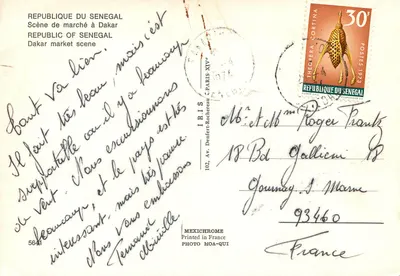 REPUBLIQUE DU SENEGAL
Scène de marché à Dakar
REPUBLIC OF SENEGAL
Dakar market scene
Tout va bien.
Il fait très beau, mais c'est
supportable car il y a beaucoup
de vent. Nous
beaucoup, et le pays est très
interessant, mais très pauvre
Nous vous embrassons
Fernand
564
IRIS
102, Av. Denfert-Rochereau (PARIS XIVe)
MEXICHROME
Printed in France
PHOTO HOA-QUI
30F
POSTES 1976
REPUBLIQUE DU SENEGAL
Mr et Mme Roger Frantz
18 Bd Gallieni 18
Gournay s/ Marne
93460
France